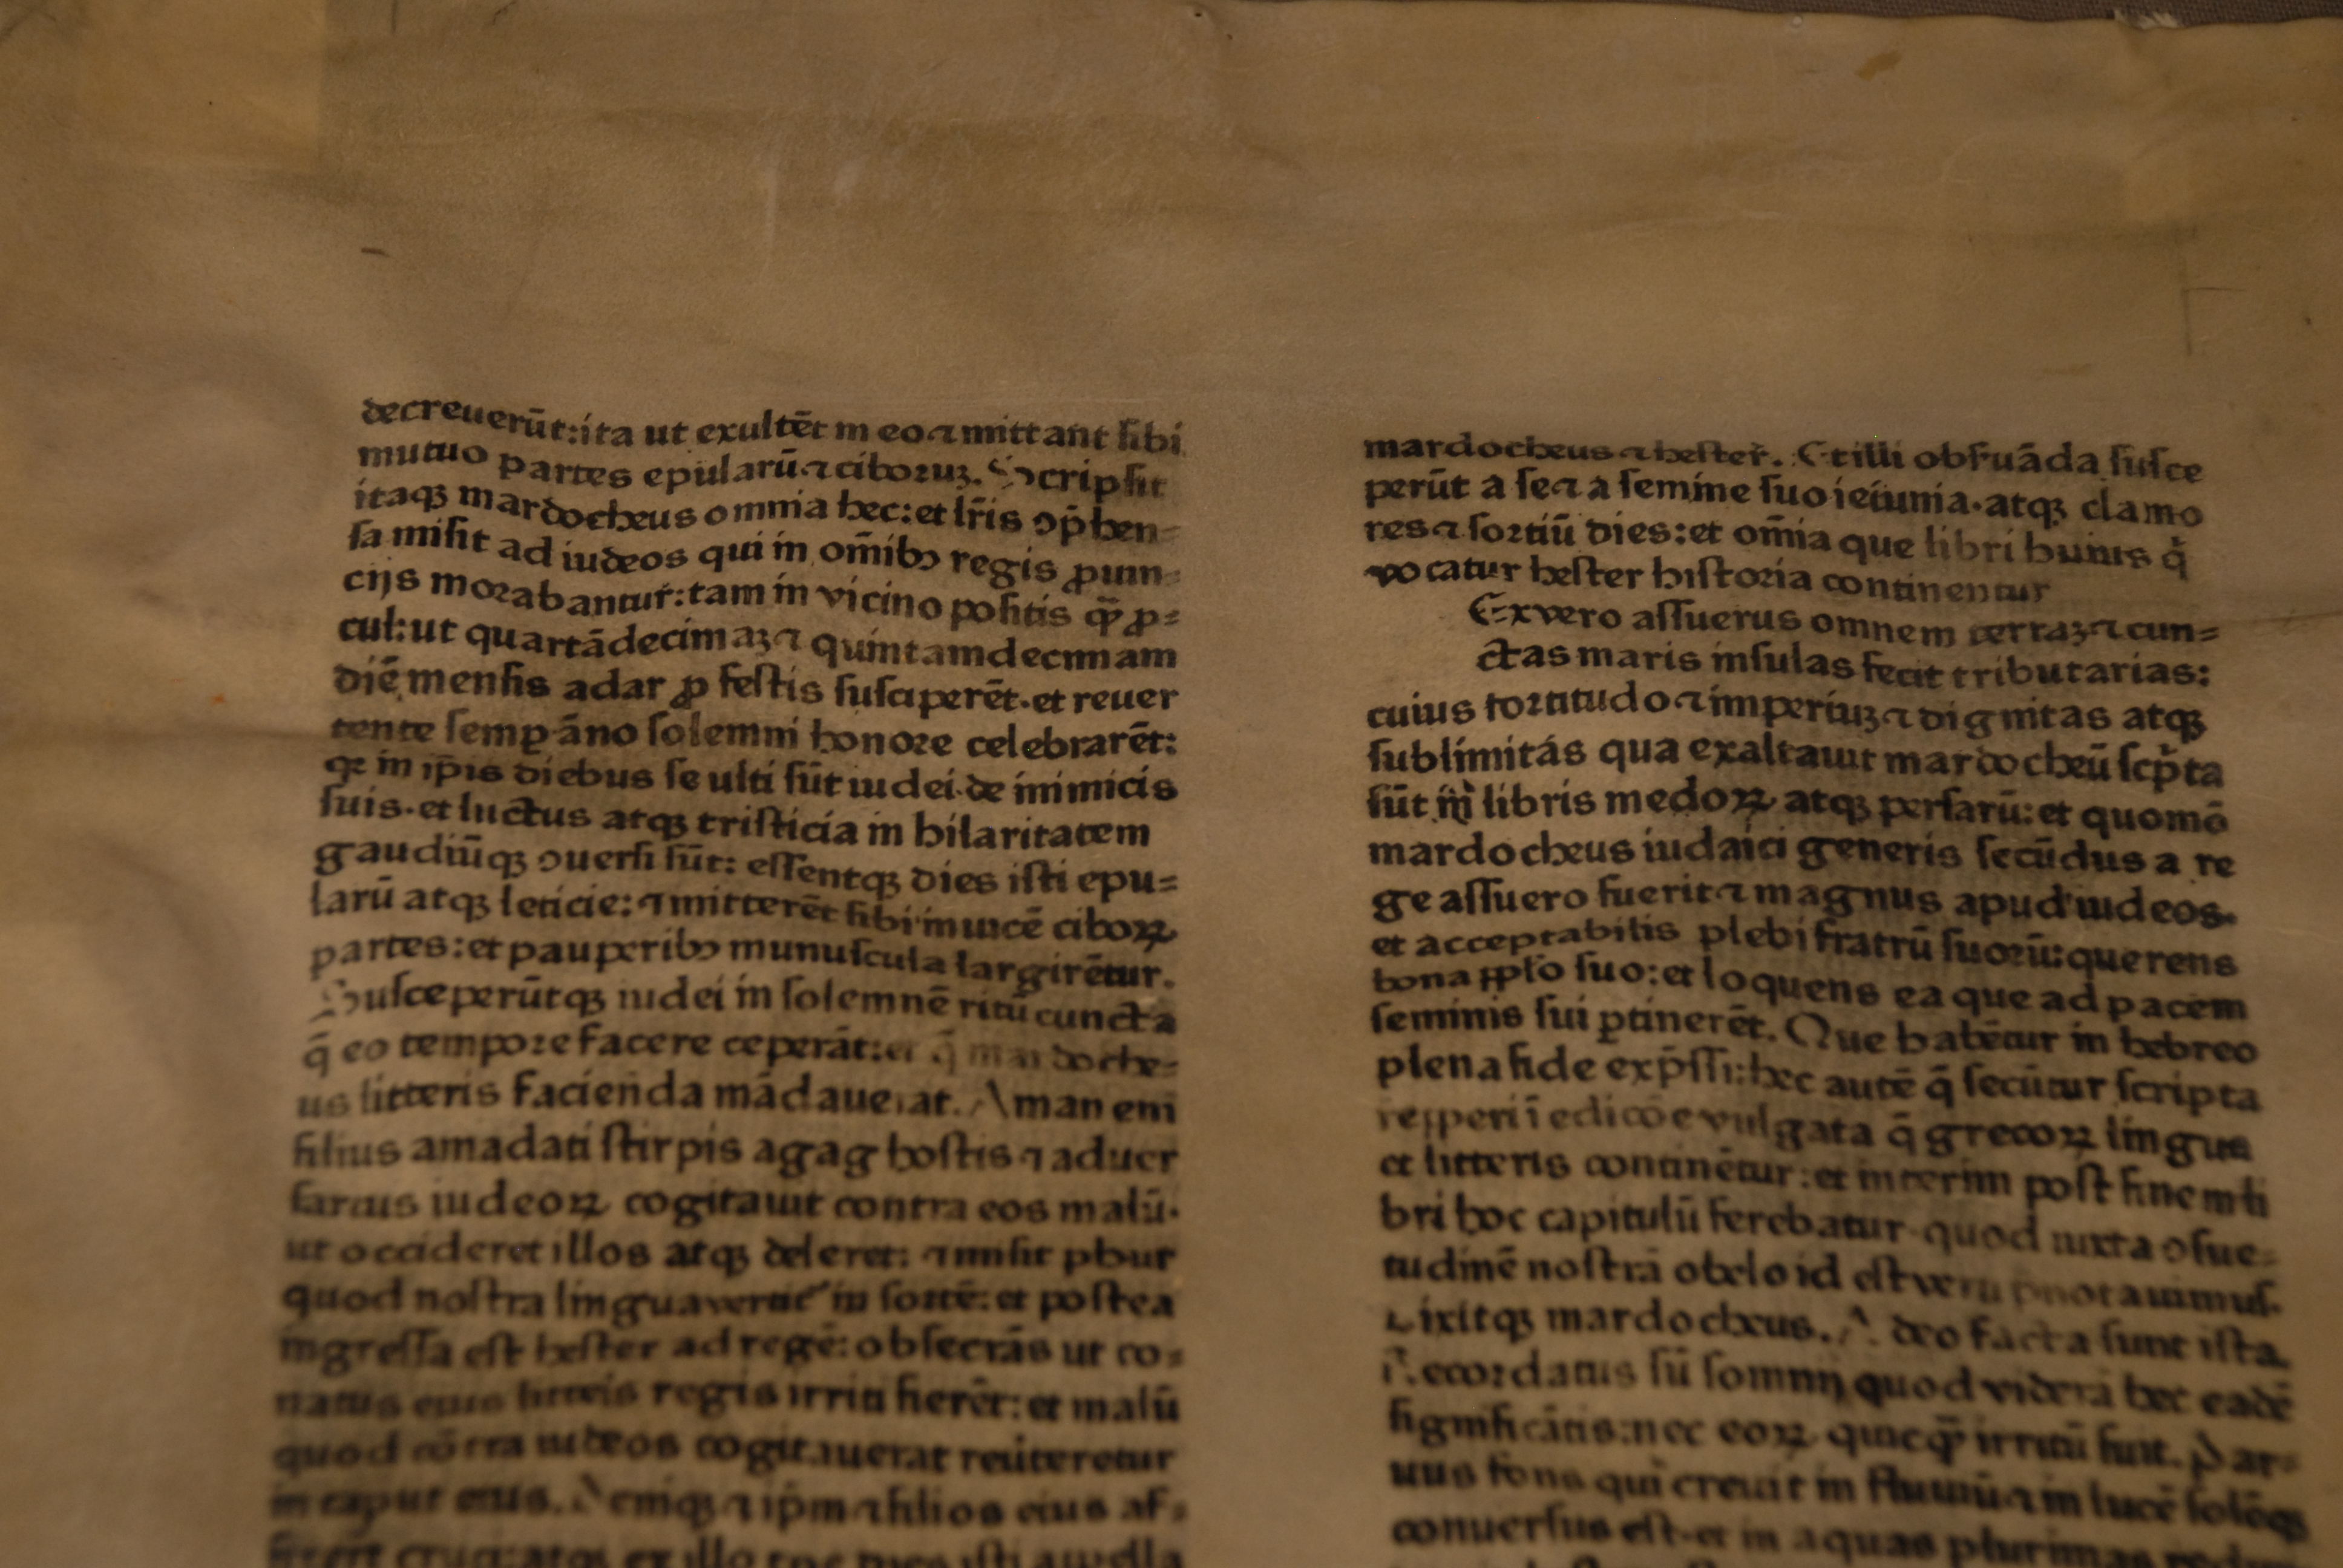 decreuerūt:ita ut exultēt in eo ⁊ mittant sibi
mutuo partes epularū ⁊ ciboruꝫ. Scripsit
itaqꝫ mardocheus omnia hec: et lr̄is ꝯp̄hen=
sa misit ad iudeos qui in om̄ibꝯ regis ꝓuin=
cijs morabantur: tam in vicino positis q̄ꝫ ꝓ=
cul: ut quartādecimaꝫ ⁊ quintamdecimam
diē mensis adar ꝓ festis susciperēt. et reuer
tente semp āno solemni honore celebrarēt:
qꝛ in ip̄is diebus se ulti sūt iudei de inimicis
suis. et luctus atqꝫ tristicia in hilaritatem
gaudiūqꝫ ꝯuersi sūt: essentqꝫ dies isti epu=
larū atqꝫ leticie: ⁊ mitterēt sibi inuicē ciboꝝ
partes: et pauperibꝯ munuscula largirētur.
Susceperūtqꝫ iudei in solemnē ritū cuncta
q̄ eo tempore facere ceperāt: et q̄ mardoche=
us litteris facienda mādauerat. Aman eni
filius amadati stirpis agag hostis ⁊ aduer
sarius iudeoꝝ cogitauit contra eos malū.
ut occideret illos atqꝫ deleret: ⁊ misit phur
quod nostra lingua vertit in sortē: et postea
ingressa est hester ad regē: obsecrās ut co=
natus eius litteris regis irriti fierēt: et malū
quod cōtra iudeos cogitauerat reuiteretur
in caput eius. Deniqꝫ ⁊ ip̄m ⁊ filios eius af=
fixert cruci: atqꝫ ex illo dies isti appella
mardocheus ⁊ hester. Et illi obsruāda susce
perūt a se ⁊ a semine suo ieiunia. atqꝫ clamo
res ⁊ sortiū dies: et om̄ia que libri huius q̇
vocatur hester historia continentur
Ex vero assuerus omnem terraꝫ ⁊ cun=
ctas maris insulas fecit tributarias:
cuius fortitudo ⁊ imperiuꝫ ⁊ dignitas atqꝫ
sublimitás qua exaltauit mardocheū scp̄ta
sūt in libris medoꝝ atqꝫ persarū: et quomō
mardocheus iudaici generis secūdus a re
ge assuero fuerit ⁊ magnus apud iudeos.
et acceptabilis plebi fratrū suorū: querens
bona pplo suo: et loquens ea que ad pacem
seminis sui ꝑtinerēt. Que habētur in hebreo
plena fide exp̄ssi: hec autē q̄ secūtur scripta
repperi ī edicōe vulgata q̄ grecoꝝ lingua
et litteris continētur: et interim post finem li
bri hoc capitulū ferebatur quod iuxta ꝯsue=
tudinē nostrā obelo id est veru p̄notauimus.
Dixitqꝫ mardocheus. A deo facta sunt ista.
Recordatus sū somnij quod viderā hec eadē
significātis: nec eoꝝ quicq̄ꝫ irritū fuit. Par=
uus fons qui creuit in fluuiū ⁊ in lucē solēqꝫ
conuersus est. et in aquas plurimas